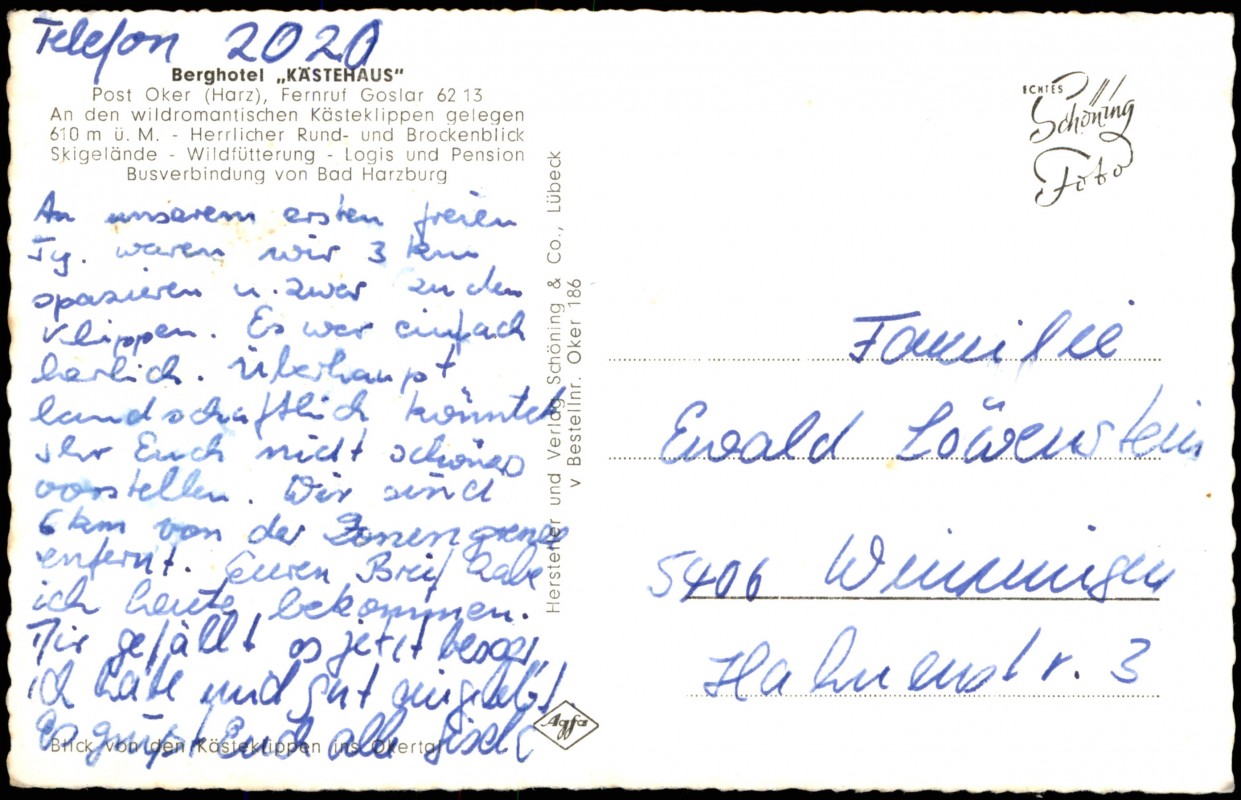 Telefon 2020
Berghotel „KÄSTEHAUS“
Post Oker (Harz), Fernruf Goslar 62 13
An den wildromantischen Kästeklippen gelegen
610 m ü. M. - Herrlicher Rund- und Brockenblick
Skigelände - Wildfütterung - Logis und Pension
Busverbindung von Bad Harzburg
An unserem ersten freien
Tg. waren wir 3 km
spazieren u. zwar zu den
Klippen. Es war einfach
herlich. Überhaupt
landschaftlich könntet
Ihr Euch nicht schöner
vorstellen. Wir sind
6 km von der Zonengrenze
enfernt. Euren Breif habe
ich heute bekommen.
Mir gefällt es jetzt besser,
ich habe mich gut eingelebt
Es grüßt Euch alle
Blick von den Kästeklippen ins Okertal
Hersteller und Verlag Schöning & Co., Lübeck
v Bestellnr. Oker 186
Agfa
ECHTES
Schöning
Foto
Familie
Ewald Löwenstein
5406 Winningen
Hahnenstr. 3